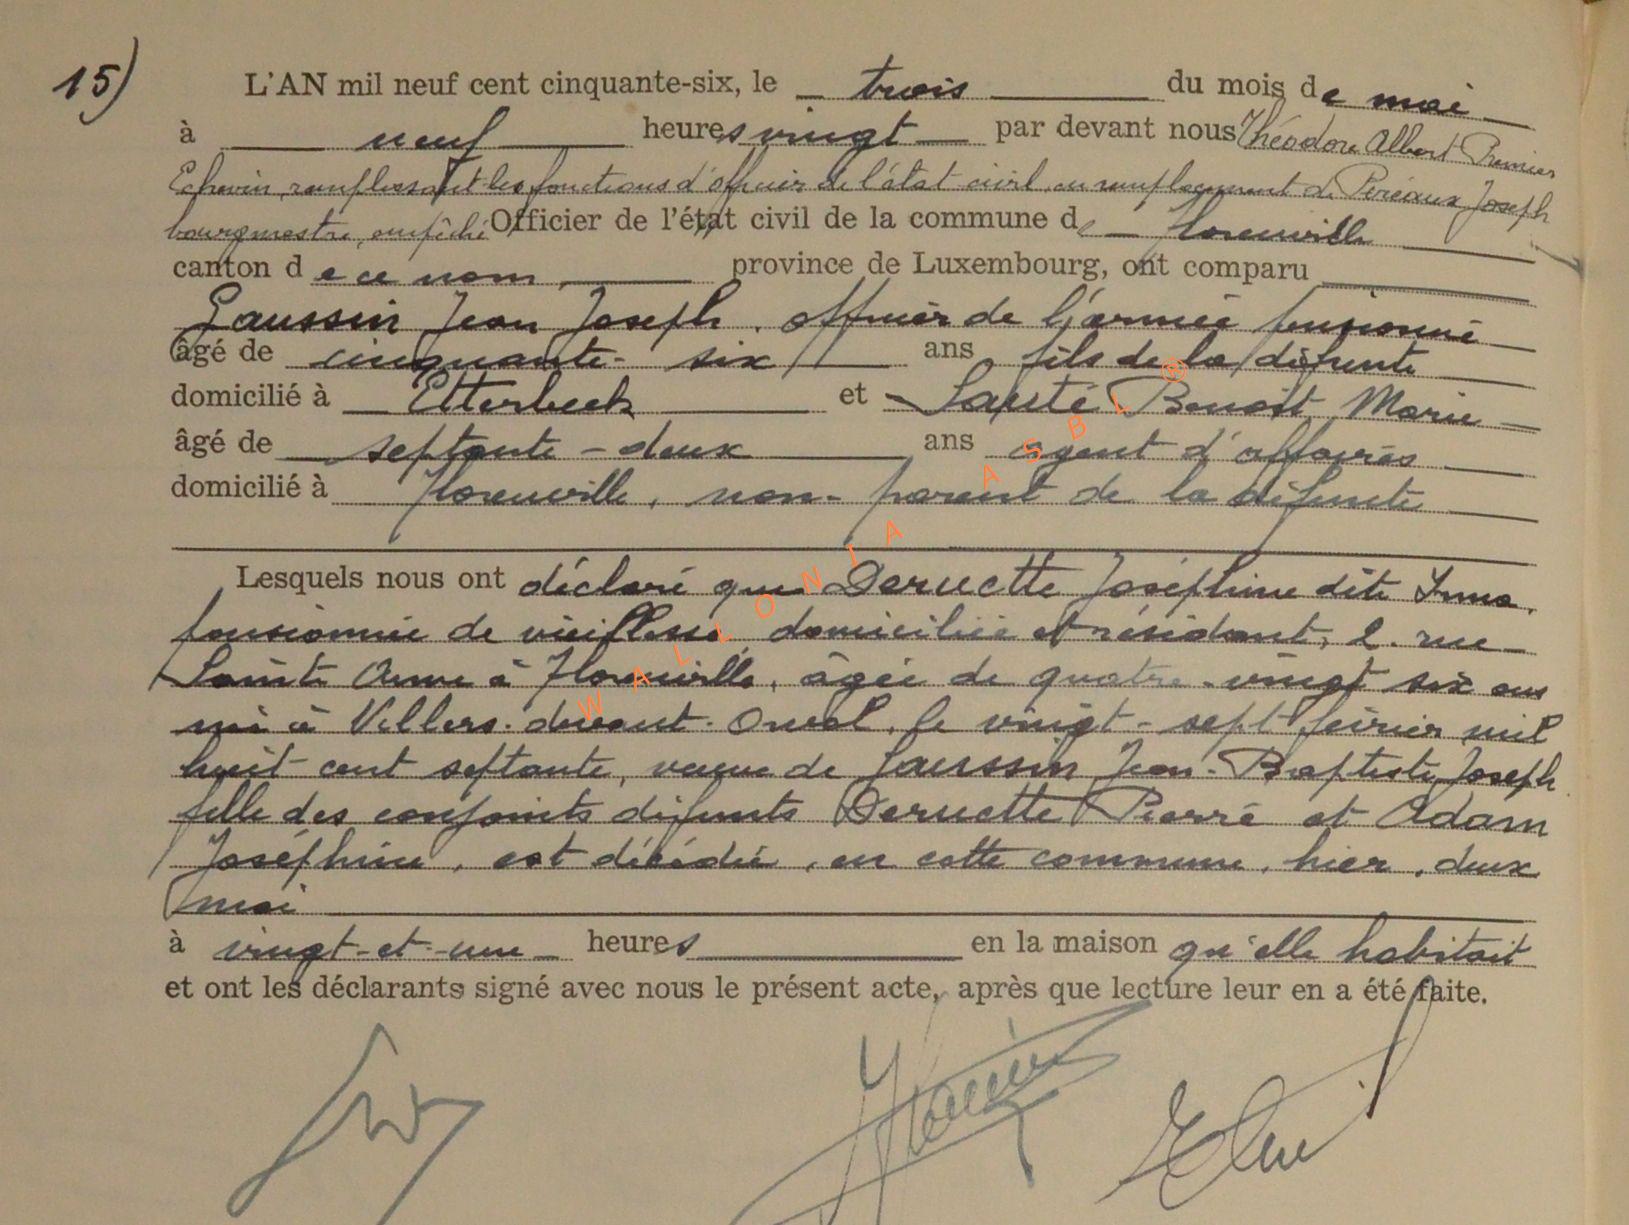 15)
L'AN mil neuf cent cinquante-six, le trois du mois de mai
à neuf heures vingt par devant nous Théodore Albert Premier
Echevin, remplissant les fonctions d'officier de l'état civil, en remplacement de Périaux Joseph
bourgmestre, empêché Officier de l'état civil de la commune de Florenville
canton de ce nom province de Luxembourg, ont comparu
Gaussin Jean Joseph, officier de l'armée pensionné
âgé de cinquante-six ans fils de la défunte
domicilié à Etterbeek et Lapité Benoît Marie
âgé de septante-deux ans agent d'affaires
domicilié à Florenville, non-parent de la défunte
Lesquels nous ont déclaré que Deruette Joséphine dite Irma,
pensionnée de vieillesse, domiciliée et résidant, 2, rue
Sainte Anne à Florenville, âgée de quatre-vingt six ans
née à Villers-devant-Orval, le vingt-sept février mil
huit cent septante, veuve de Gaussin Jean-Baptiste Joseph
fille des conjoints défunts Deruette Pierre et Adam
Joséphine, est décédée, en cette commune, hier, deux
mai
à vingt-et-une heures en la maison qu'elle habitait
et ont les déclarants signé avec nous le présent acte, après que lecture leur en a été faite.
WALLONIA ASBL ®